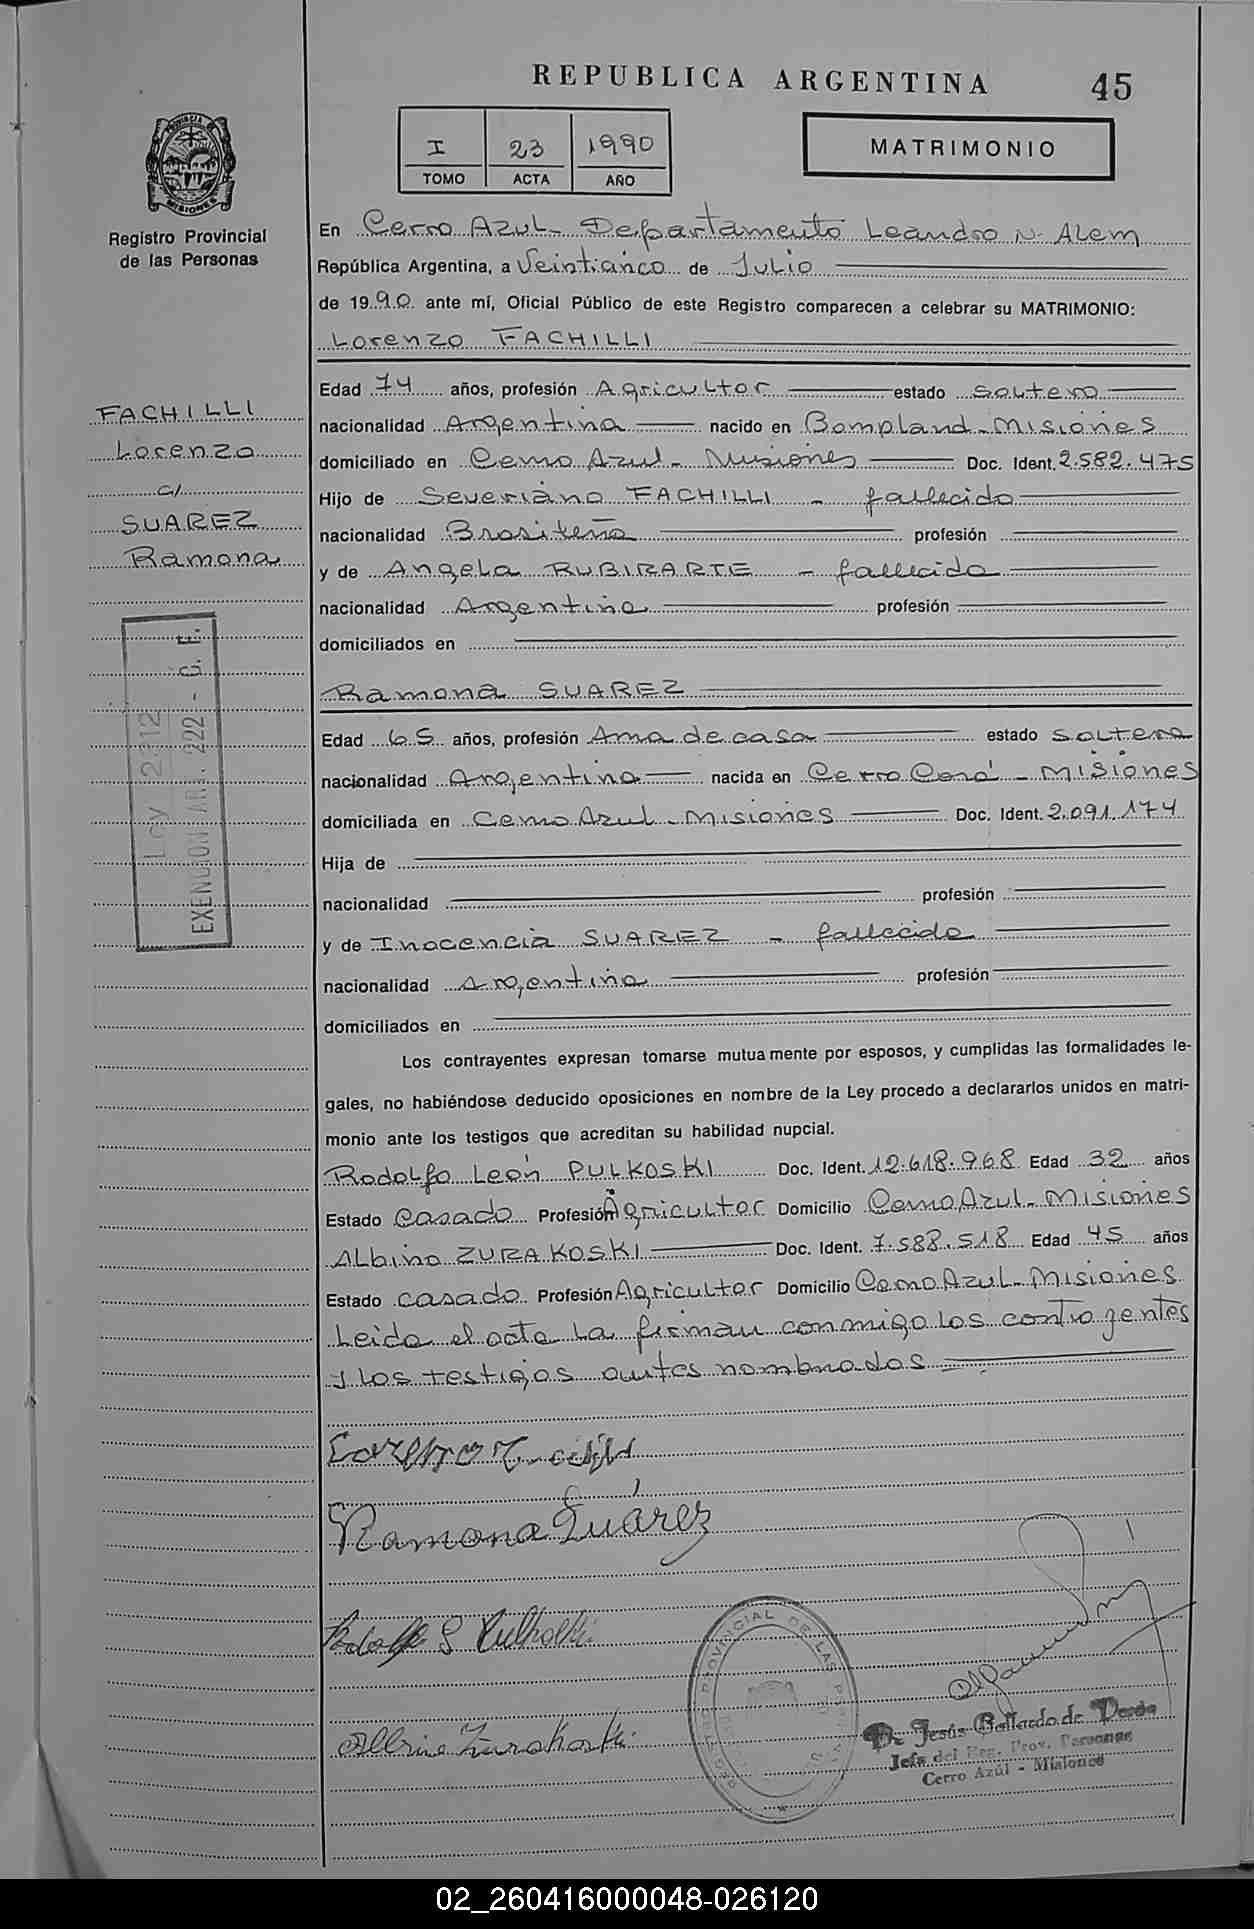 REPUBLICA ARGENTINA 45
I 23 1990
TOMO ACTA AÑO
MATRIMONIO
Registro Provincial
de las Personas
En Cerro Azul- Departamento Leandro N. Alem
República Argentina, a Veinticinco de Julio
de 1990 ante mí, Oficial Público de este Registro comparecen a celebrar su MATRIMONIO:
Lorenzo FACHILLI
FACHILLI
Lorenzo
c/
SUAREZ
Ramona
Edad 74 años, profesión Agricultor estado soltero
nacionalidad Argentina nacido en Bompland-Misiones
domiciliado en Cerro Azul- Misiones Doc. Ident. 2.582.475
Hijo de Severiano FACHILLI - fallecido
nacionalidad Brasileña profesión
y de Angela RUBIRARTE - fallecida
nacionalidad Argentina profesión
domiciliados en
Ramona SUAREZ
Ley 2312
EXENCION AR. 222 - C. F.
Edad 65 años, profesión Ama de casa estado soltera
nacionalidad Argentina nacida en Cerro Corá - Misiones
domiciliada en Cerro Azul-Misiones Doc. Ident. 2.091.174
Hija de
nacionalidad profesión
y de Inocencia SUAREZ - fallecida
nacionalidad Argentina profesión
domiciliados en
Los contrayentes expresan tomarse mutuamente por esposos, y cumplidas las formalidades le-
gales, no habiéndose deducido oposiciones en nombre de la Ley procedo a declararlos unidos en matri-
monio ante los testigos que acreditan su habilidad nupcial.
Rodolfo León PULKOSKI Doc. Ident. 12.618.968 Edad 32 años
Estado Casado Profesión Agricultor Domicilio Cerro Azul-Misiones
Albino ZURAKOSKI Doc. Ident. 7.588.518 Edad 45 años
Estado casado Profesión Agricultor Domicilio Cerro Azul-Misiones
Leida el acta la firman conmigo los contrayentes
y los testigos antes nombrados
Lorenzo
Ramona Suárez
Rodolfo
Albino Zurakoski
REGISTRO PROVINCIAL DE LAS PERSONAS
Jesús Gallardo de
Jefa del Reg. Prov. Personas
Cerro Azúl - Misiones
02_260416000048-026120